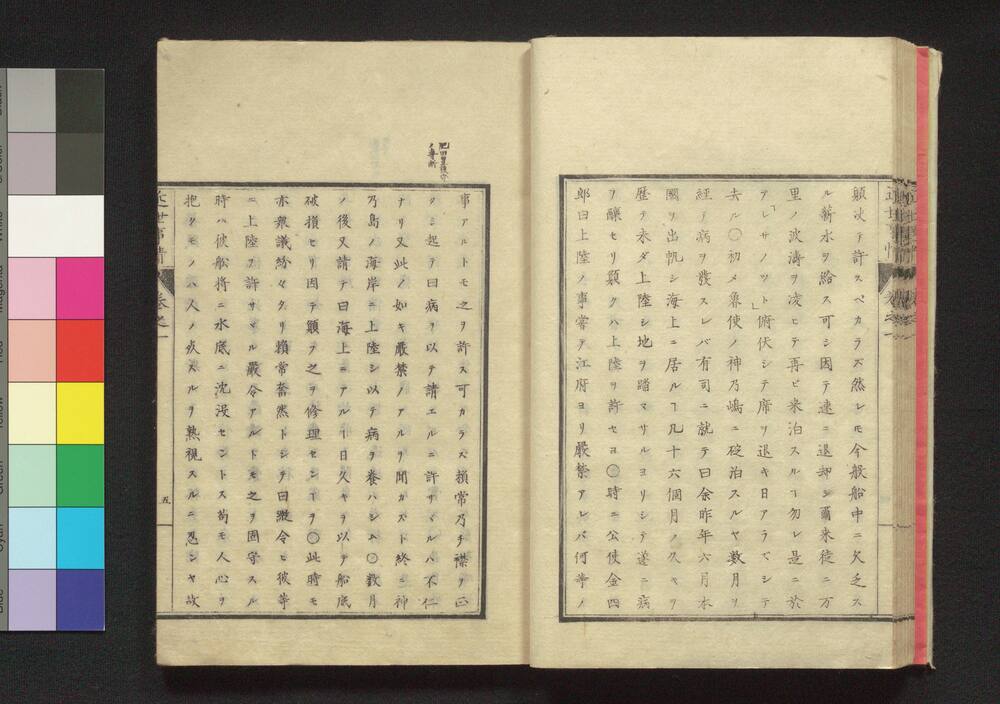 願決テ許スベカラズ然レモ今般船中ニ欠乏ス
ル薪水ヲ給ス可シ因テ速ニ退却シ爾来徒ニ万
里ノ波濤ヲ凌ヒテ再ビ来泊スルヿ勿レ是ニ於
アレサノツト」俯伏シテ席ヲ退キ日アラズシテ
去ル〇初メ魯使ノ神乃嶋ニ碇泊スルヤ数月ヲ
経テ病ヲ發スレバ有司ニ就テ曰余昨年六月本
國ヲ出帆シ海上ニ居ルヿ凡十六個月ノ久キヲ
歴テ未ダ上陸シ地ヲ踏マサルヨリシテ遂ニ病
ヲ醸セリ願クハ上陸ヲ許セヨ〇時ニ公使金四
郎曰上陸ノ事嘗テ江府ヨリ嚴禁アレバ何等ノ
近世事情
巻之一
肥田豊後守
ノ専断
事アルトモ之ヲ許ス可カラス頼常乃チ襟ヲ正
クシ起テ曰病ヲ以テ請エルニ許サヾルハ不仁
ナリ又此ノ如キ嚴禁ノアルヲ聞カズト終ニ神
乃島ノ海岸ニ上陸シ以テ病ヲ養ハシム〇数月
ノ後又請テ曰海上ニアルヿ日久キヲ以テ船底
破損セリ因テ願クハ之ヲ修理センヿヲ〇此時モ
亦衆議紛々タリ頼常奮然トシテ曰縱令ヒ彼等
ニ上陸ヲ許サヾル嚴令アルトモ之ヲ固守スル
時ハ彼舩将ニ水底ニ沈没セントス苟モ人心ヲ
抱クモノハ人ノ疾スルヲ熟視スルニ忍ンヤ故
近世事情
巻之一
五